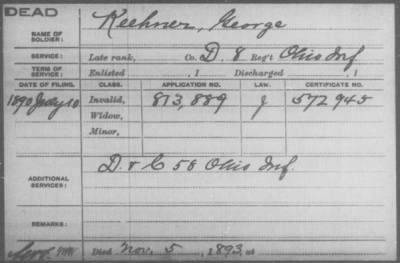 DEAD
NAME OF SOLDIER: Keehner, George
SERVICE: Late rank, Co. D. 8 Reg't Ohio Inf
TERM OF SERVICE: Enlisted , 1 Discharged , 1
DATE OF FILING. CLASS. APPLICATION NO. LAW. CERTIFICATE NO.
1890 July 10 Invalid, 813,889 J 572945
Widow,
Minor,
ADDITIONAL SERVICES: D. & C 58 Ohio Inf.
REMARKS:
Died Nov. 5, 1893, at